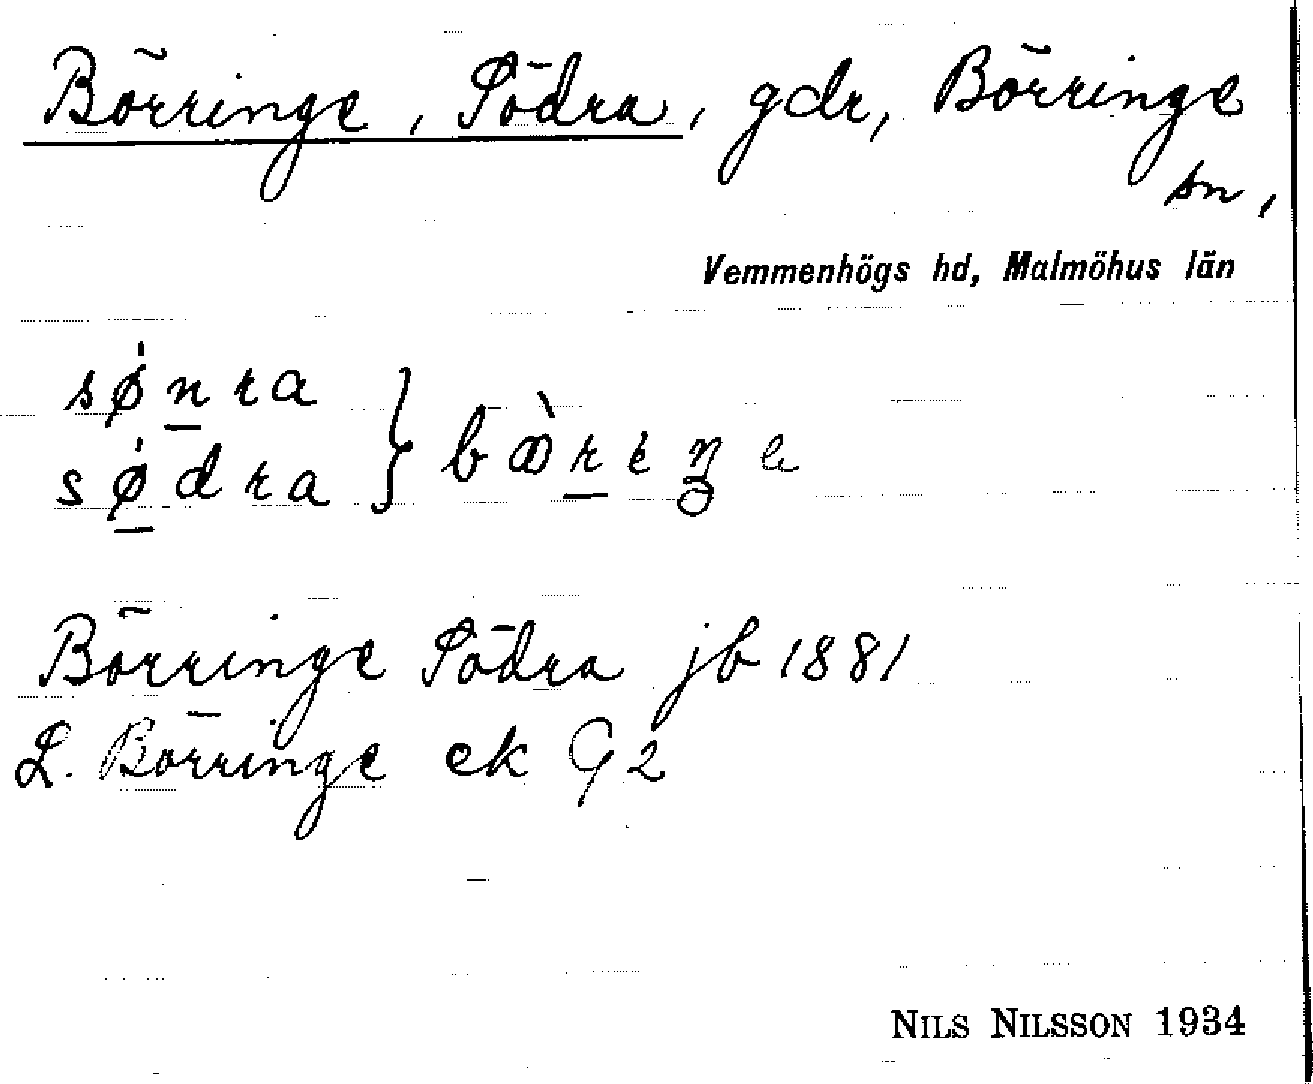 Börringe, Södra, gdr, Börringe
sn,
Vemmenhögs hd, Malmöhus län
sǿnra
sǿdra } bꝏ̀rɛŋɛ
Börringe Södra jb 1881
L. Börringe ek G2
NILS NILSSON 1934